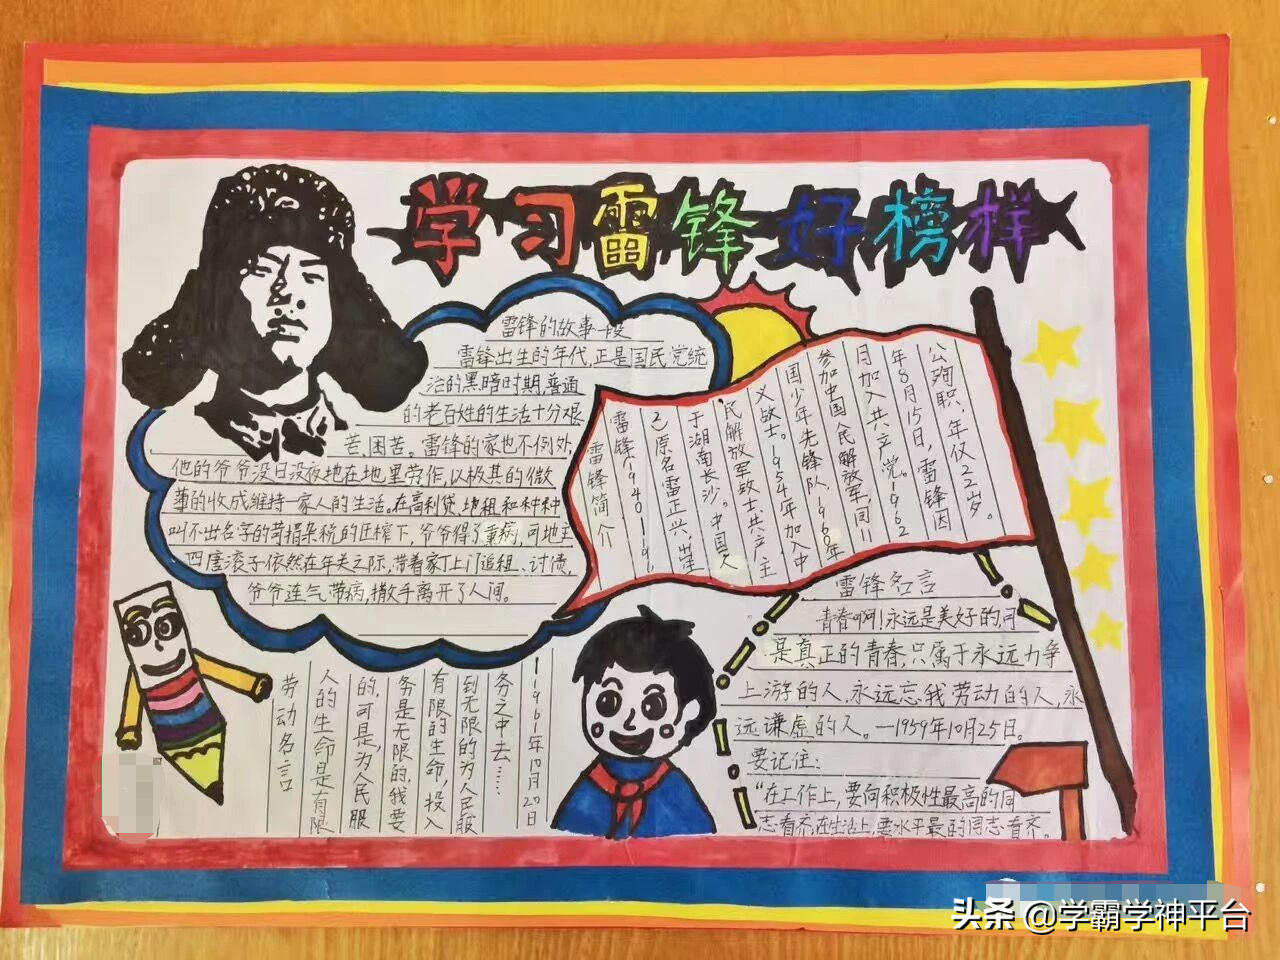 学习雷锋好榜样
雷锋的故事一段
雷锋出生的年代,正是国民党统
治的黑暗时期,普通
的老百姓的生活十分艰
苦、困苦。雷锋的家也不例外,
他的爷爷没日没夜地在地里劳作,以极其的微
薄的收成维持一家人的生活。在高利贷、地租和种种
叫不出名字的苛捐杂税的压榨下,爷爷得了重病,可地主
四唐滚子依然在年关之际,带着家丁上门追租、讨债,
爷爷连气带病,撒手离开了人间。
雷锋简介
雷锋(1940.19.
已原名雷正兴,出生
于湖南长沙。中国人
民解放军战士,共产主
义战士。1954年加入中
国少年先锋队,1960年
参加中国人民解放军,同11
月加入共产党。1962
年8月15日,雷锋因
公殉职,年仅22岁。
雷锋名言
青春啊!永远是美好的,可
是真正的青春,只属于永远力争
上游的人,永远忘我劳动的人,永
远谦虚的人。—1959年10月25日。
要记住:
“在工作上,要向积极性最高的同
志看齐,在生活上,要水平最的同志看齐。
劳动名言
人的生命是有限
的,可是,为人民服
务是无限的,我要
有限的生命,投入
到无限的为人民服
务之中去……
1961年10月20日
头条 @学霸学神平台